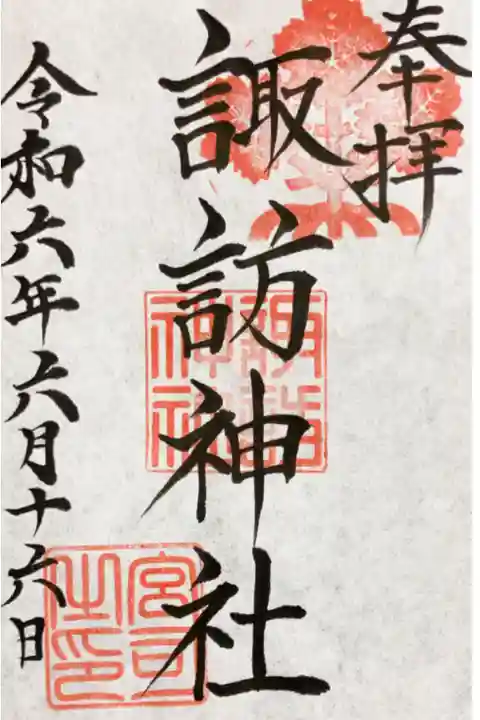 奉拝
諏訪神社
諏訪
神社
宮司
之印
令和六年六月十六日